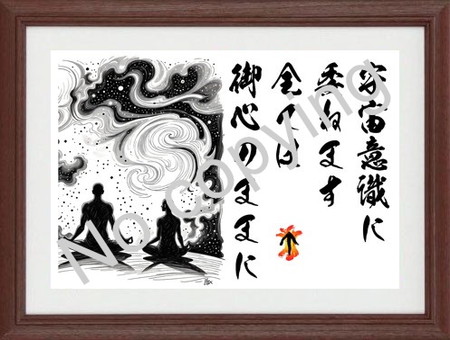 宇宙意識に
委ねます
全ては
御心のママに
No copying